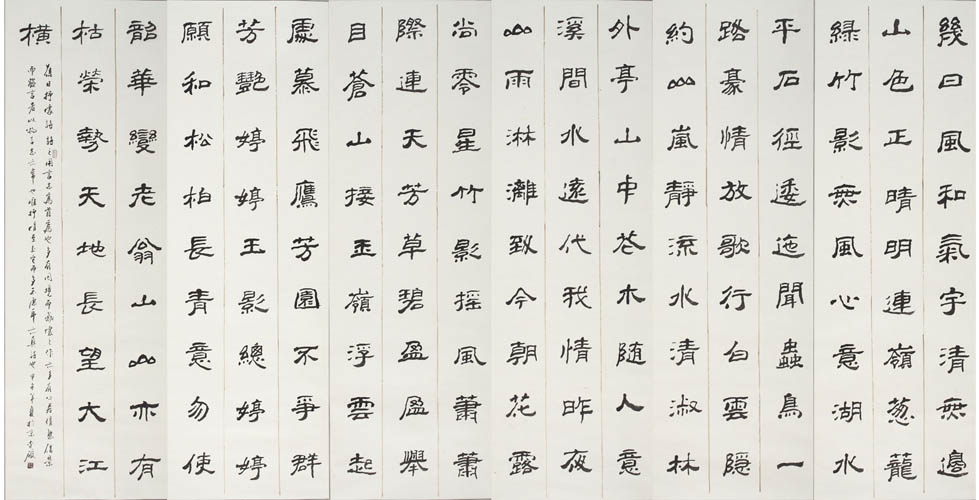 幾日風和氣宇清無邊
山色正晴明連嶺葱蘢
綠竹影無風心意湖水
平石徑逶迤聞蟲鳥一
路豪情放歌行白雲隱
約山嵐靜流水清淑林
外亭山中花木隨人意
溪間水遠代我情昨夜
山雨淋灕致今朝花露
尚零星竹影搖風蕭蕭
際連天芳草碧盈盈舉
目蒼山接玉嶺浮雲起
處慕飛鷹芳園不爭群
芳艷婷婷玉影總婷婷
願和松柏長青意勿使
韶華變老翁山山亦有
枯榮勢天地長望大江
橫